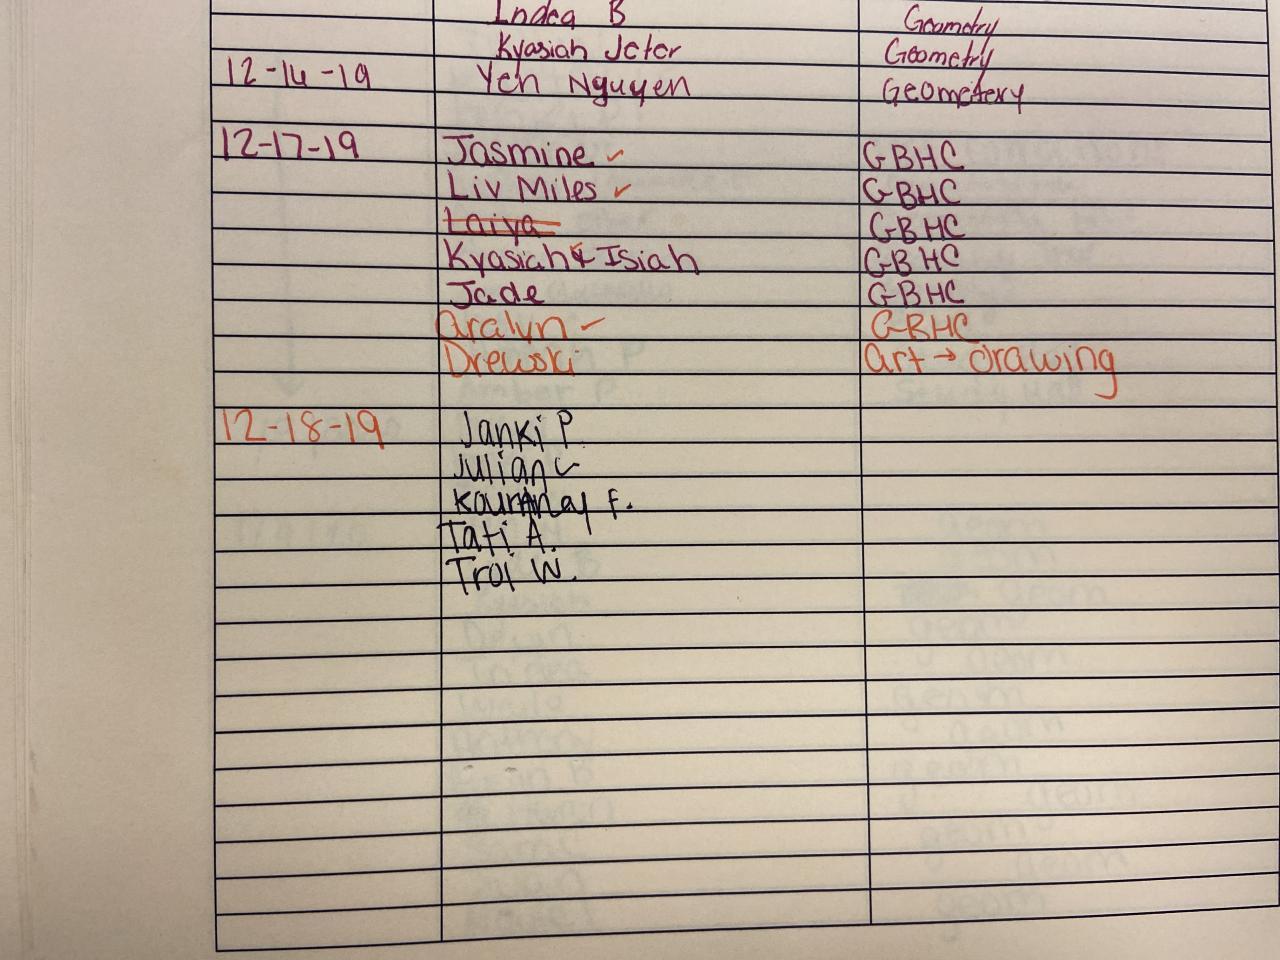 Indea B Geometry
Kyasiah Jeter Geometry
12-14-19 Yen Nguyen Geometery
12-17-19 Jasmine ✓ GBHC
Liv Miles ✓ GBHC
Laiya GBHC
Kyasiah & Isiah GBHC
Jade GBHC
Aralyn ✓ GBHC
Drewski Art → drawing
12-18-19 Janki P.
Julian
Kourtnay F.
Tati A.
Troi W.